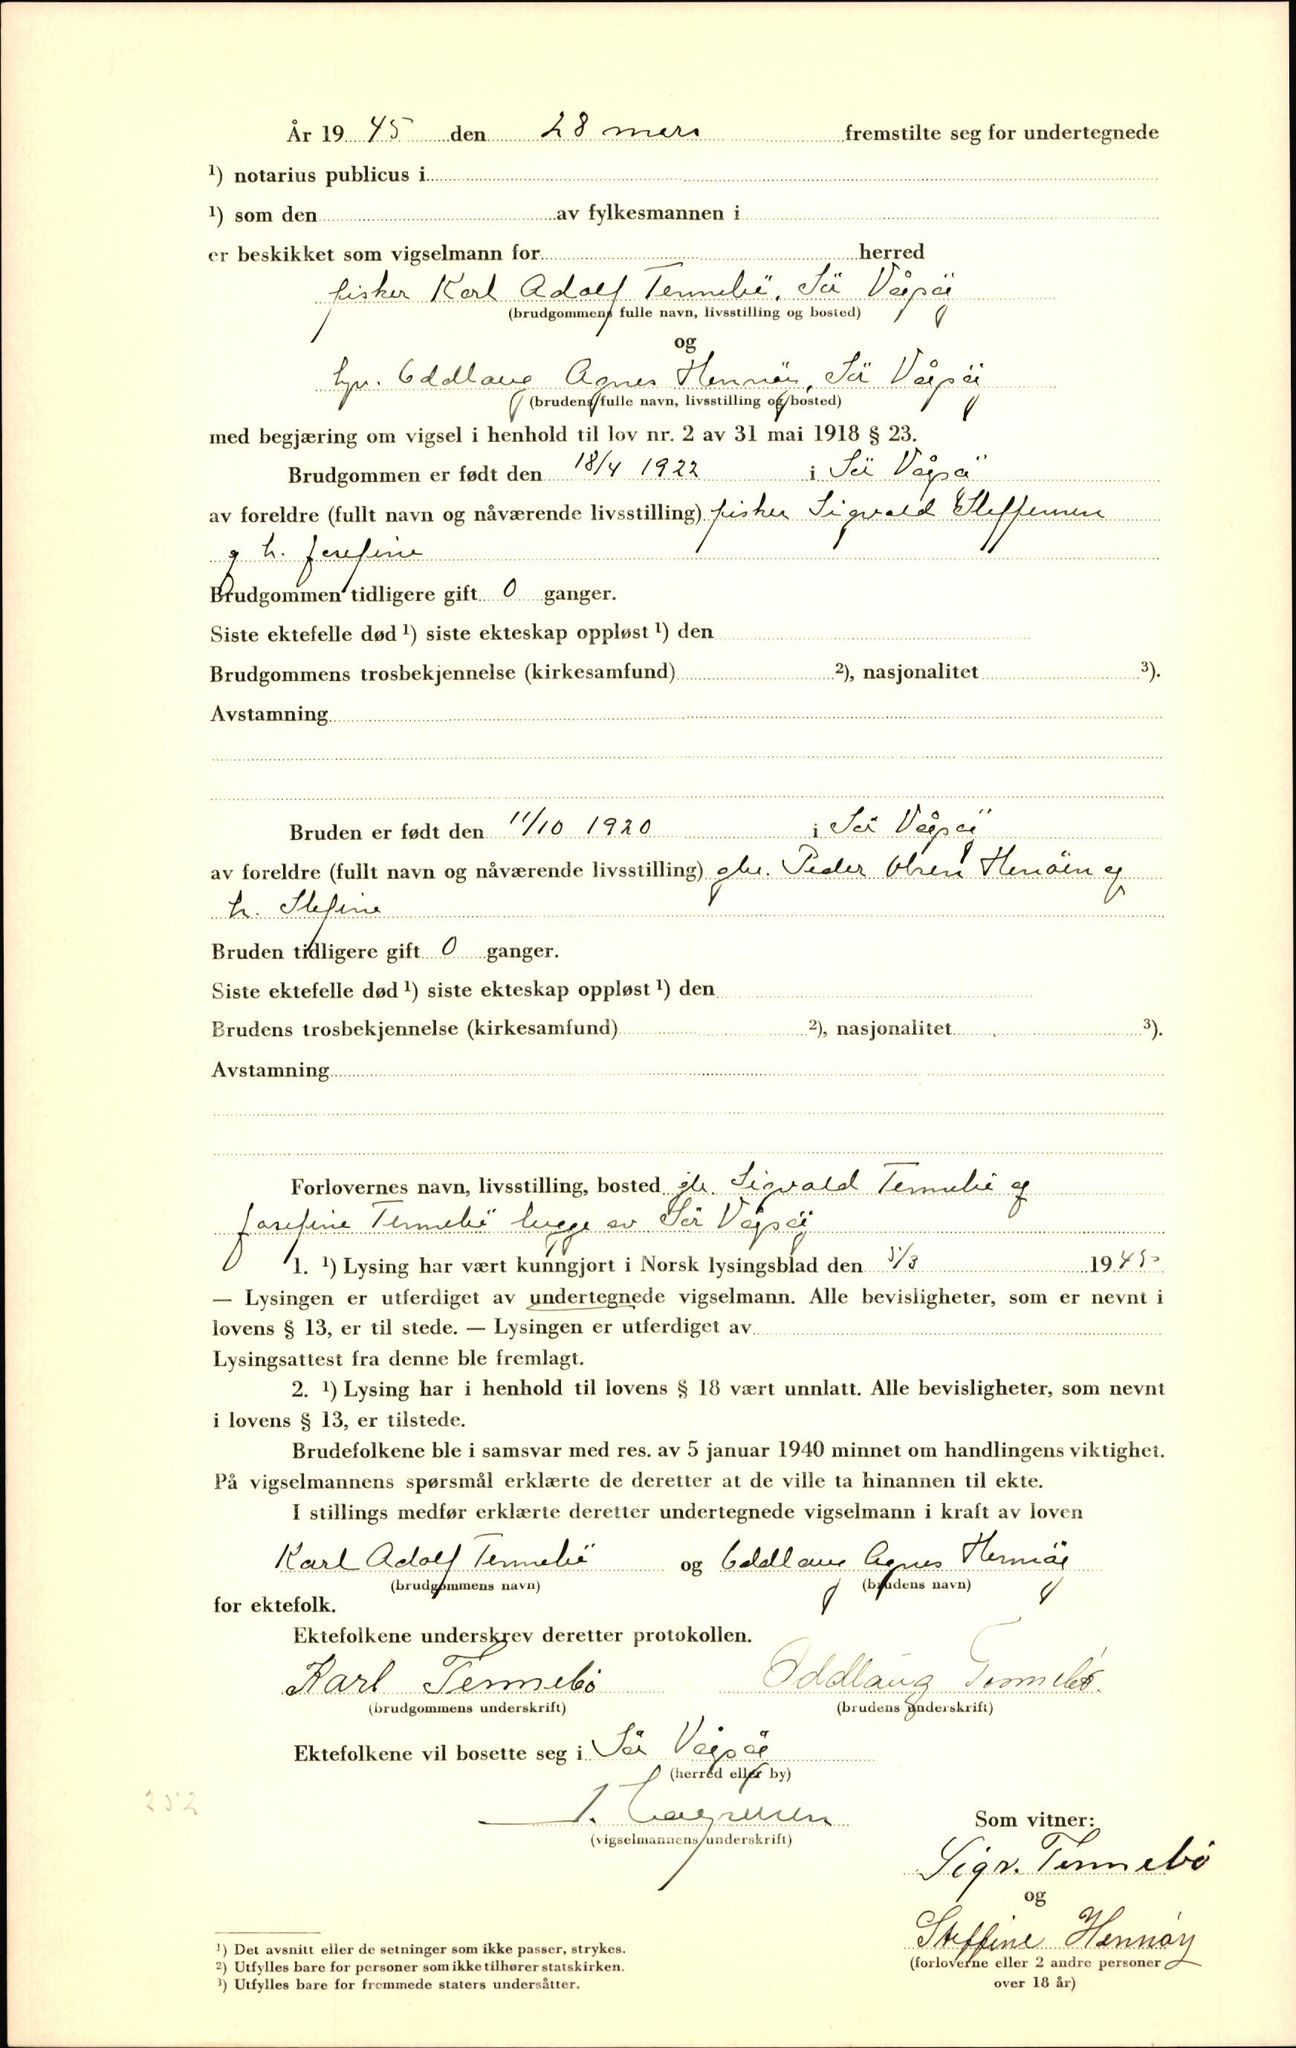 År 1945 den 28 mars fremstilte seg for undertegnede
¹) notarius publicus i
¹) som den av fylkesmannen i
er beskikket som vigselmann for herred
fisker Karl Adolf Tennebö, Sör Vågsöy
(brudgommens fulle navn, livsstilling og bosted)
og
Oddlaug Agnes Hennöy, Sör Vågsöy
(brudens fulle navn, livsstilling og bosted)
med begjæring om vigsel i henhold til lov nr. 2 av 31 mai 1918 § 23.
Brudgommen er født den 18/4 1922 i Sör Vågsö
av foreldre (fullt navn og nåværende livsstilling) fisker Sigvald Steffensen
og h. Josefine
Brudgommen tidligere gift 0 ganger.
Siste ektefelle død ¹) siste ekteskap oppløst ¹) den
Brudgommens trosbekjennelse (kirkesamfund) ²), nasjonalitet ³).
Avstamning
Bruden er født den 11/10 1920 i Sör Vågsöy
av foreldre (fullt navn og nåværende livsstilling) gbr. Peder Olsen Henöen og
h. Stefine
Bruden tidligere gift 0 ganger.
Siste ektefelle død ¹) siste ekteskap oppløst ¹) den
Brudens trosbekjennelse (kirkesamfund) ²), nasjonalitet ³).
Avstamning
Forlovernes navn, livsstilling, bosted Sigvald Tennebö og
Josefine Tennebö begge av Sör Vågsöy
1. ¹) Lysing har vært kunngjort i Norsk lysingsblad den 5/3 1945
— Lysingen er utferdiget av undertegnede vigselmann. Alle bevisligheter, som er nevnt i
lovens § 13, er til stede. — Lysingen er utferdiget av
Lysingsattest fra denne ble fremlagt.
2. ¹) Lysing har i henhold til lovens § 18 vært unnlatt. Alle bevisligheter, som nevnt
i lovens § 13, er tilstede.
Brudefolkene ble i samsvar med res. av 5 januar 1940 minnet om handlingens viktighet.
På vigselmannens spørsmål erklærte de deretter at de ville ta hinannen til ekte.
I stillings medfør erklærte deretter undertegnede vigselmann i kraft av loven
Karl Adolf Tennebö og Oddlaug Agnes Hennöy
(brudgommens navn) (brudens navn)
for ektefolk.
Ektefolkene underskrev deretter protokollen.
Karl Tennebö Oddlaug Tennebø.
(brudgommens underskrift) (brudens underskrift)
Ektefolkene vil bosette seg i Sör Vågsöy
(herred eller by)
252
(vigselmannens underskrift)
Som vitner:
Sigv. Tennebö
og
Steffine Hennøy
(forloverne eller 2 andre personer
over 18 år)
¹) Det avsnitt eller de setninger som ikke passer, strykes.
²) Utfylles bare for personer som ikke tilhører statskirken.
³) Utfylles bare for fremmede staters undersåtter.